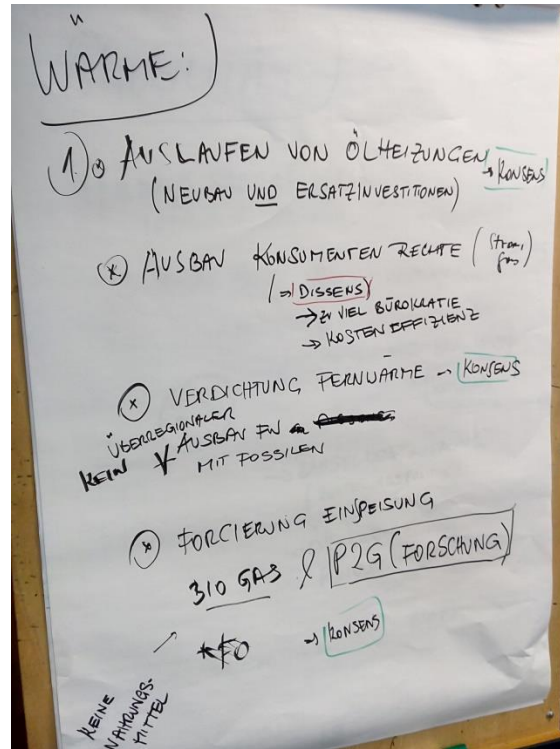 WÄRME:
1) AUSLAUFEN VON ÖLHEIZUNGEN → KONSENS
(NEUBAU UND ERSATZINVESTITONEN)
AUSBAU KONSUMENTEN RECHTE (Strom, gas)
→ DISSENS
→ ZU VIEL BÜROKRATIE
→ KOSTENEFFIZIENZ
VERDICHTUNG FERNWÄRME → KONSENS
ÜBERREGIONALER
KEIN AUSBAU FW
MIT FOSSILEN
FORCIERUNG EINSPEISUNG
BIO GAS & P2G (FORSCHUNG)
→ KONSENS
KEINE
NAHRUNGS-
MITTEL